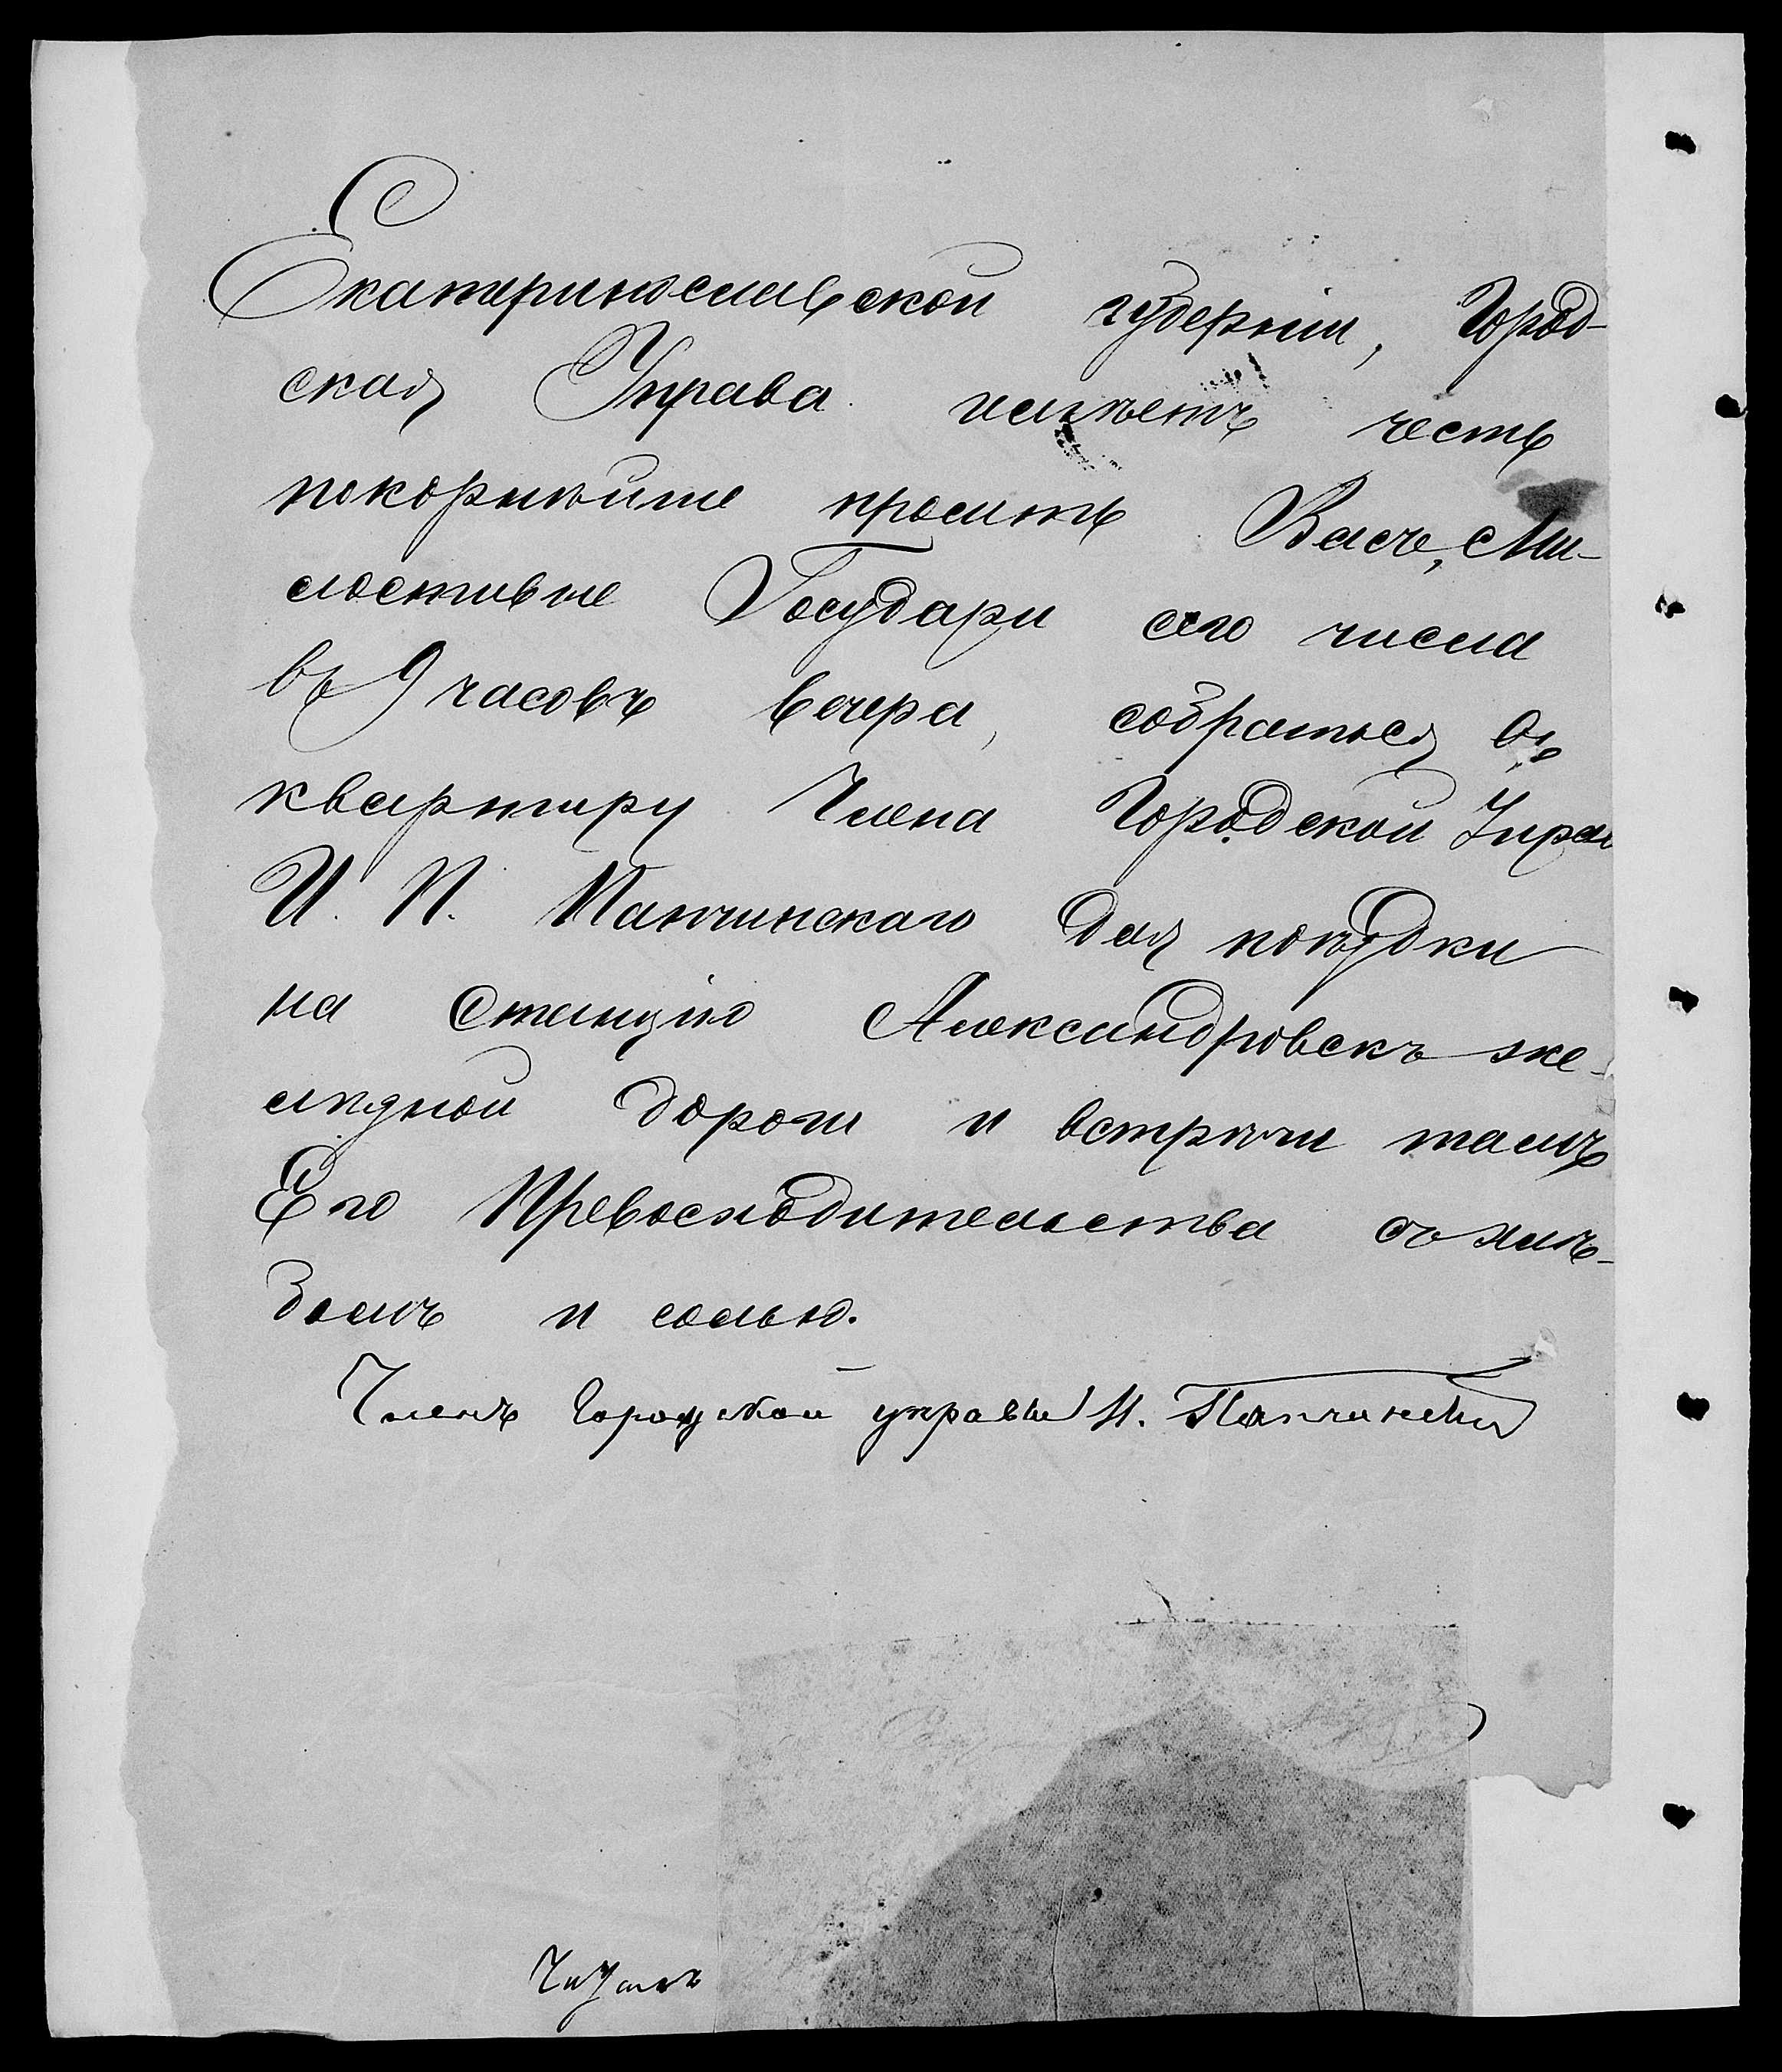 Екатеринославской губернiи, Город-
ская Управа имѣетъ честь
покорнѣйше просить Васъ, Ми-
лостивые Государи сего числа
въ 9 часовъ вечера, собраться въ
квартиру Члена Городской Управ
И. П. Панчинскаго для поѣздки
на Станцiю Александровскъ же-
лѣзной дороги и встрѣчи тамъ
Его Превосходительства съ хлѣ-
бомъ и солью.
Членъ Городской управы И. Панчинскiй